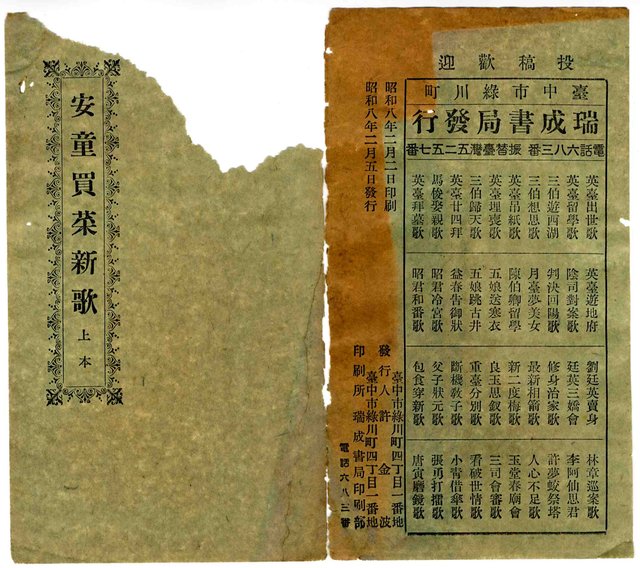 投稿歡迎
臺中市綠川町
瑞成書局發行
電話六八三番 振替臺灣五二五七番
英臺出世歌
英臺留學歌
三伯遊西湖
三伯想思歌
英臺吊紙歌
英臺埋喪歌
三伯歸天歌
英臺廿四拜
馬俊娶親歌
英臺拜墓歌
英臺遊地府
陰司對案歌
判決回陽歌
月臺夢美女
陳伯卿留學
五娘送寒衣
五娘跳古井
益春告御狀
昭君冷宮歌
昭君和番歌
劉廷英賣身
廷英三嬌會
修身治家歌
最新相箭歌
新二度梅歌
良玉思釵歌
重臺分別歌
斷機教子歌
父子狀元歌
包食穿新歌
林章巡案歌
李阿仙思君
許夢蛟祭塔
人心不足歌
玉堂春廟會
三司會審歌
看破世情歌
小青借傘歌
張勇打擂歌
唐寅磨鏡歌
昭和八年二月二日印刷
昭和八年二月五日發行
臺中市綠川町四丁目一番地
發行人 許金波
臺中市綠川町四丁目一番地
印刷所 瑞成書局印刷部
電話六八三番
安童買菜新歌 上本